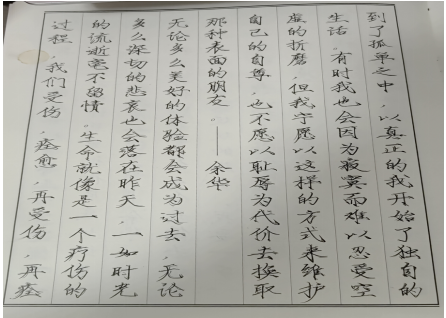 到了孤单之中，以真正的我开始了独自的
生活。有时我也会因为寂寞而难以忍受空
虚的折磨，但我宁愿以这样的方式来维护
自己的自尊，也不愿以耻辱为代价去换取
那种表面的朋友。——余华
无论多么美好的体验都会成为过去，无论
多么深切的悲哀也会落在昨天，一如时光
的流逝毫不留情。生命就像是一个疗伤的
过程，我们受伤，痊愈，再受伤，再痊